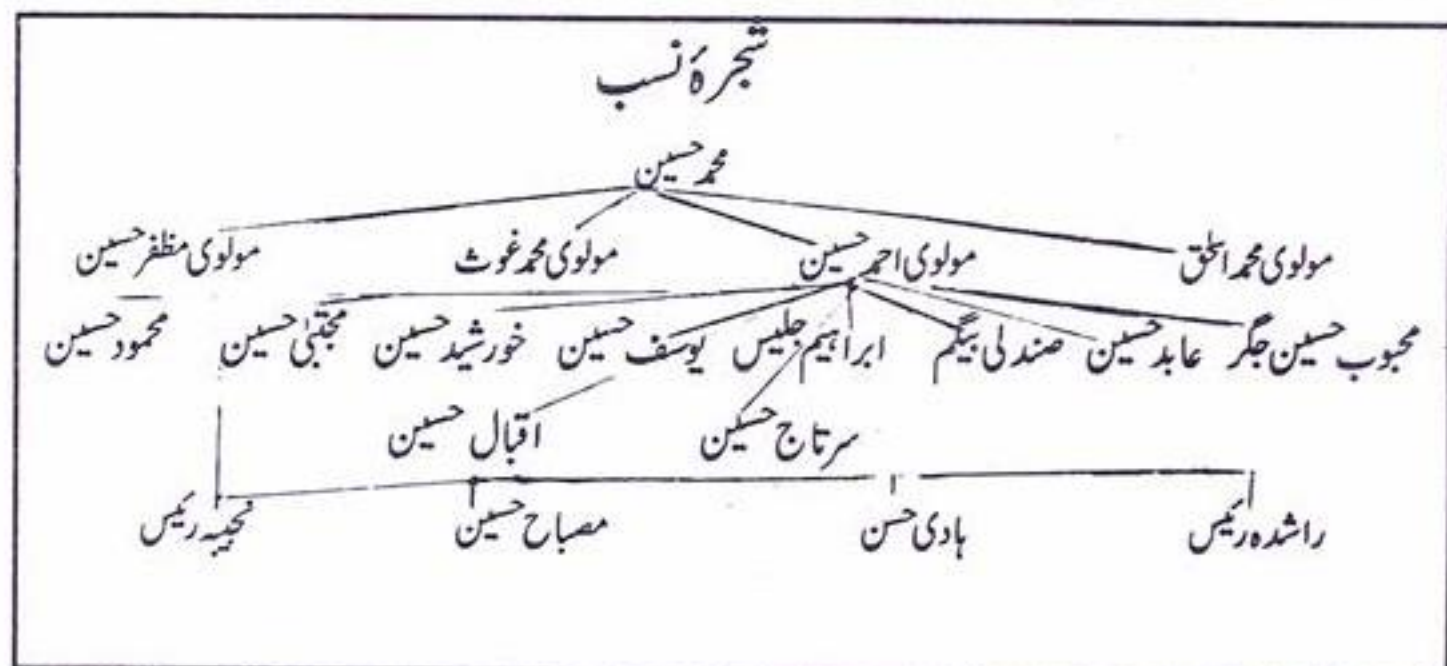 شجرۂ نسب
محمد حسین
مولوی محمد اسحٰق مولوی احمد حسین مولوی محمد غوث مولوی مظفر حسین
محبوب حسین جگر عابد حسین صندلی بیگم ابراہیم جلیس یوسف حسین خورشید حسین مجتبٰی حسین محمود حسین
سرتاج حسین اقبال حسین
راشدہ رئیس ہادی حسن مصباح حسین نجیبہ رئیس